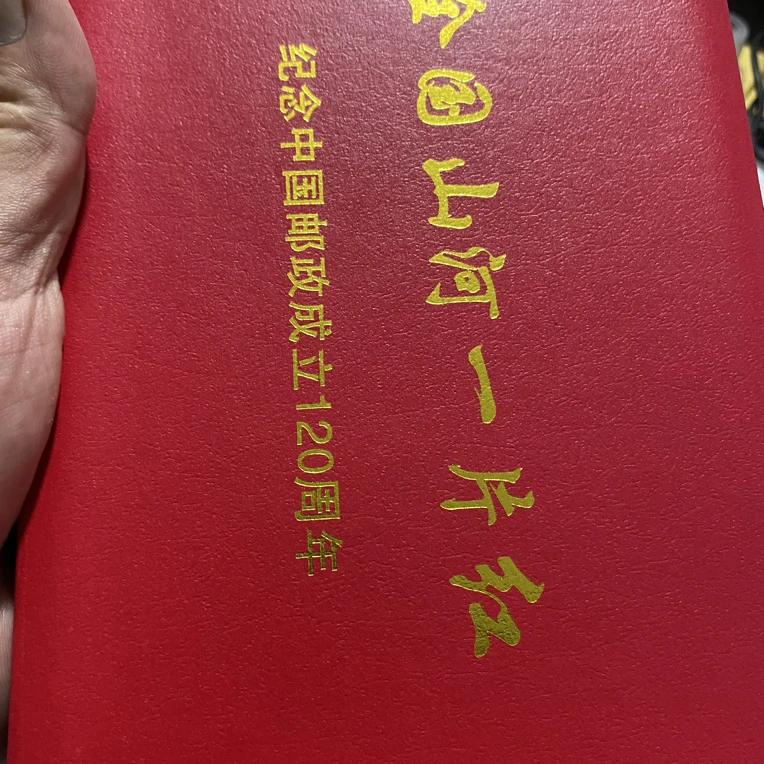 全国山河一片红
纪念中国邮政成立120周年